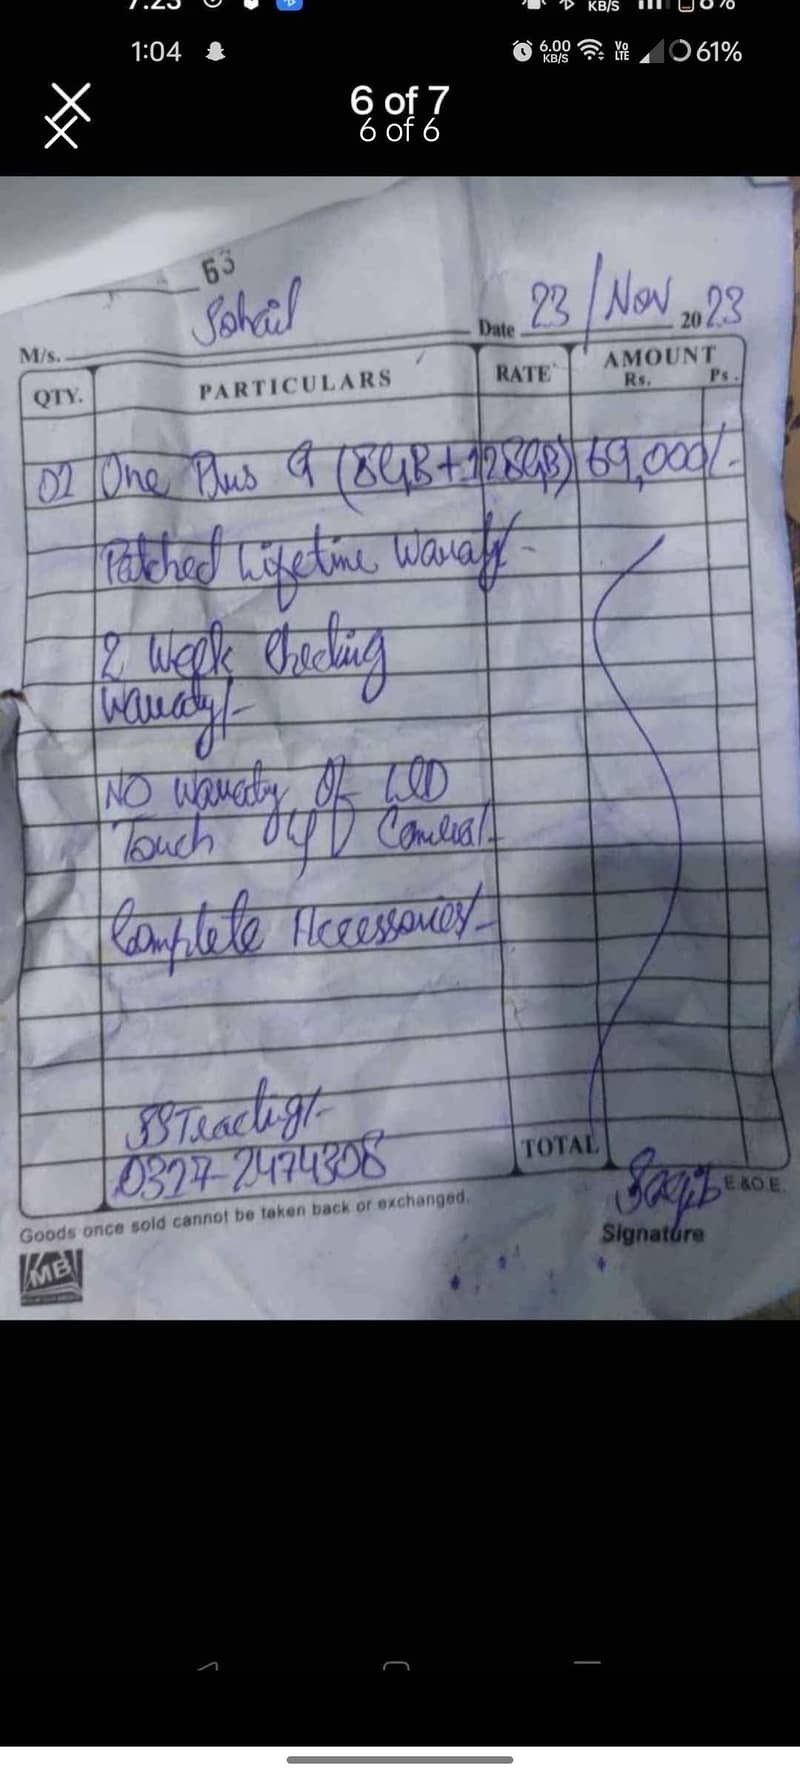 1:04
6.00 KB/S
Vo LTE
61%
6 of 7
6 of 6
63
Sohail
M/s.
Date 23/Nov 2023
QTY. PARTICULARS RATE AMOUNT
Rs. Ps.
One Plus 9 (8GB+128GB) 69,000/-
Patched Lifetime
2 Week Checking
NO Of LCD
Touch
Complete Accessories/-
0327-2474308
TOTAL
E.&O.E.
Goods once sold cannot be taken back or exchanged.
Signature
MB